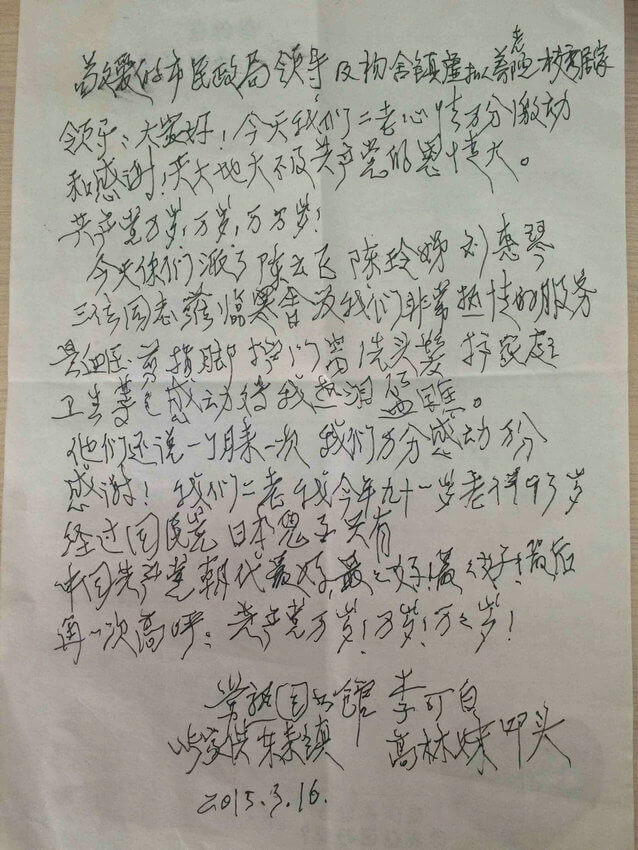 尊敬的市民政局领导及 镇虚拟养老院 居家
领导：大家好！今天我们二老心情万分激动
和感谢！天大地大不及共产党的恩情大。
共产党万岁！万岁！万万岁！
今天你们派了陈云飞 陈玲娣 刘惠琴
三位同志 临寒舍为我们非常热情的服务
量血压 剪指脚 洗头发 打 家庭
卫生等已感动得我热泪盈眶。
他们还说一个月来一次 我们万分感动万分
感谢！我们二老我今年九十一岁老伴93岁
经过国民党 日本鬼子只有
中国共产党朝代最好，最最好！最最好！最后
再一次高呼：共产党万岁！万岁！万万岁！
常熟图书馆 李可白
镇 高林妹 叩头
2015.3.16.